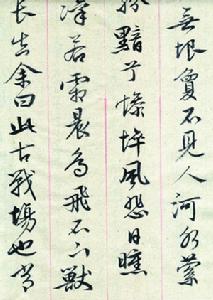 無垠夐不見人河水縈
紛黯兮慘悴風悲日曛
凜若霜晨鳥飛不下獸
長告余曰此古戰場也嘗